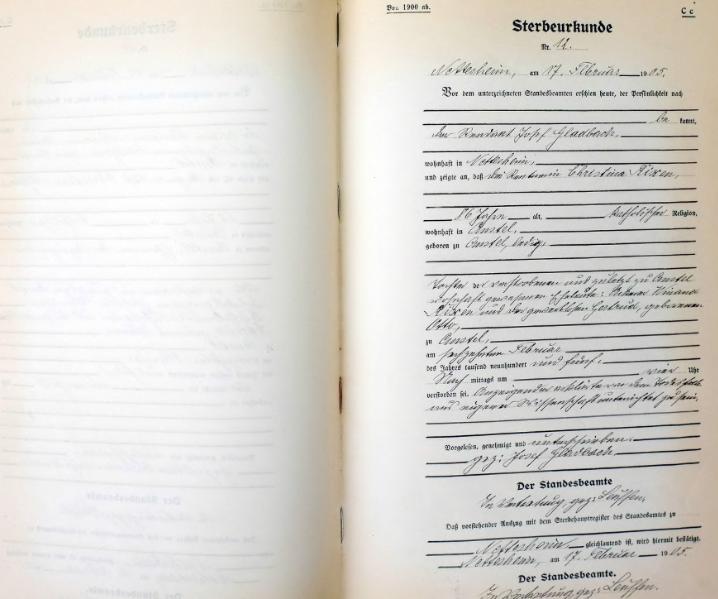 Vor. 1900 ab.
C c
Sterbeurkunde
Nr. 12.
Nettersheim, am 17. Februar 1905.
Vor dem unterzeichneten Standesbeamten erschien heute, der Persönlichkeit nach
be kannt,
der Rendant Josef Gladbach,
wohnhaft in Nettersheim,
und zeigte an, daß die Rentnerin Christina Rixen,
86 Jahre alt, katholischer Religion,
wohnhaft in
geboren zu ledig,
Tochter der verstorbenen und zuletzt zu
wohnhaft gewesenen Eheleute:
Rixen und der gewerblosen Gertrud, geborenen
Otto,
zu
am sechzehnten Februar
des Jahrs tausend neunhundert und fünf,
Nach mittags um vier Uhr
verstorben sei. Anzeigender erklärte von dem Todesfalle
aus eigener Wissenschaft unterrichtet zu sein.
Vorgelesen, genehmigt und unterschrieben.
gez: Josef Gladbach
Der Standesbeamte
In Vertretung, gez:
Daß vorstehender Auszug mit dem Sterbehauptregister des Standesamtes zu
Nettersheim gleichlautend ist, wird hiermit bestätigt.
Nettersheim, am 17. Februar 1905.
Der Standesbeamte.
In Vertretung, gez: